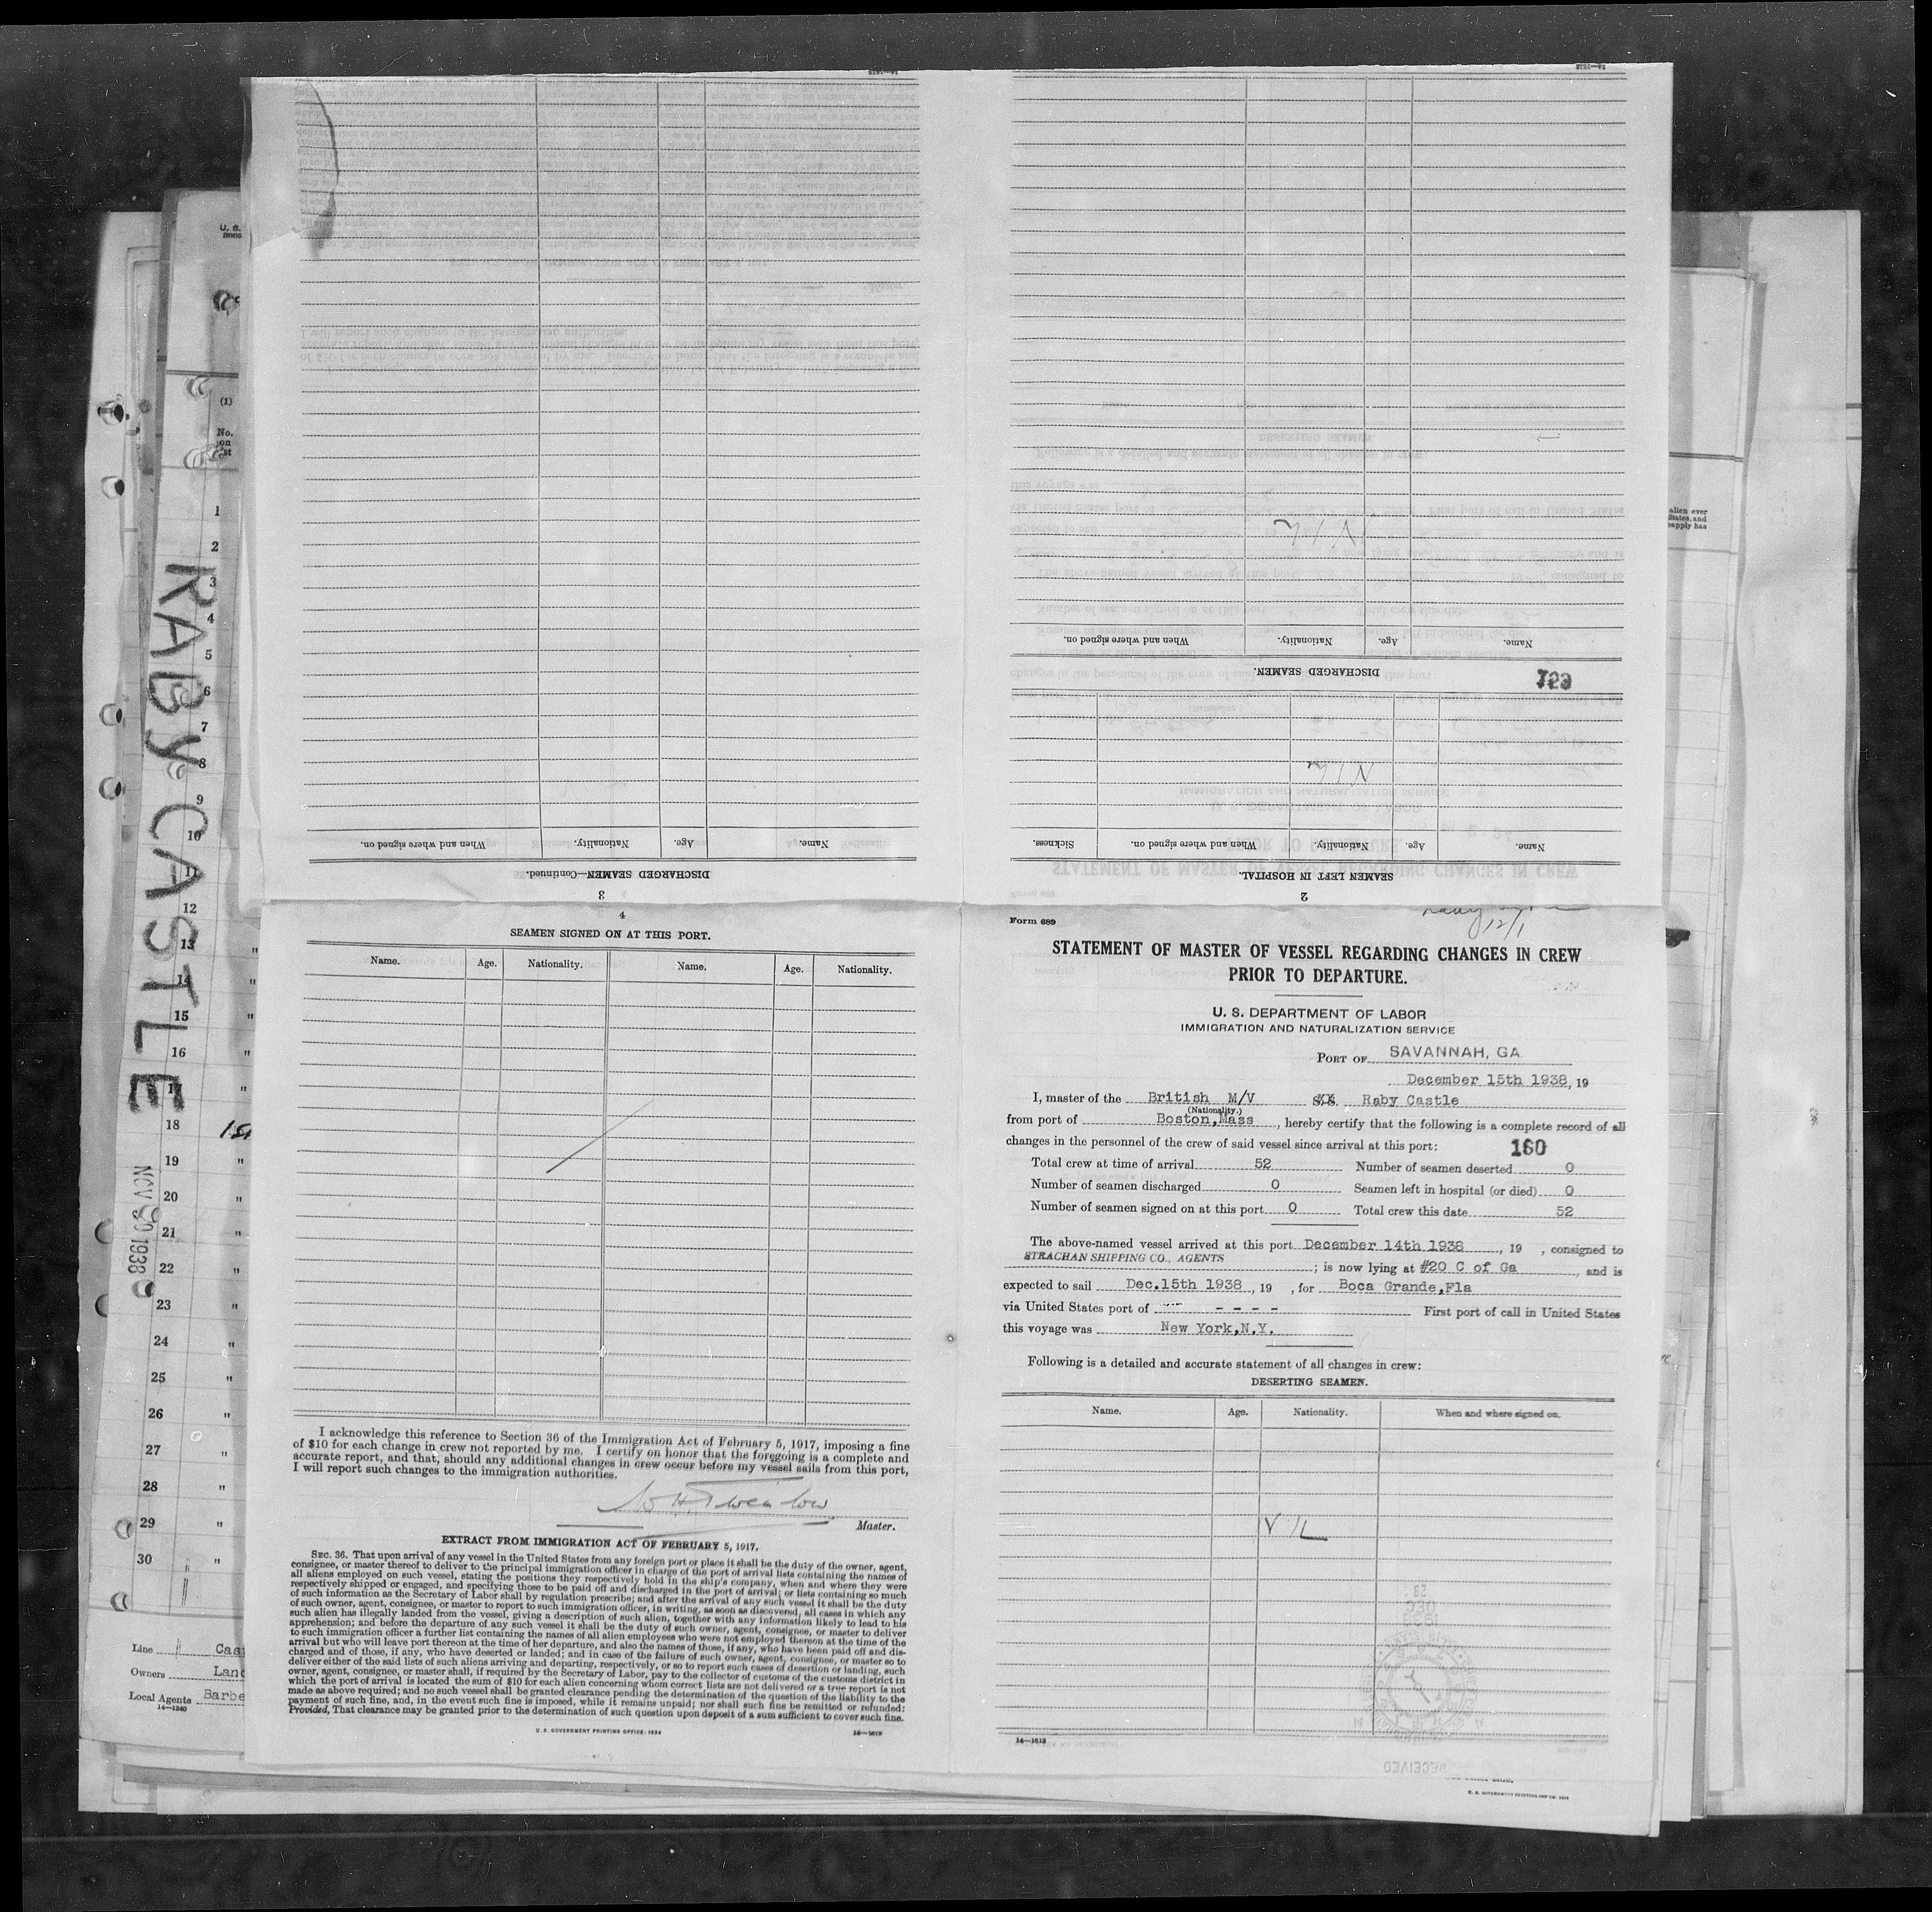 RABY CASTLE
NOV 1938
Line
Owners
Local Agents Barbe
14—1240
(1)
No.
on
1
2
3
4
5
6
7
8
9
10
11
12
13
14
15
16
17
18
19
20
21
22
23
24
25
26
27
28
29
30
alien ever
States, and
DISCHARGED SEAMEN.
Name.
Age.
Nationality.
When and where signed on.
NIL
2
SEAMEN LEFT IN HOSPITAL.
Name.
Age.
Nationality.
When and where signed on.
Sickness.
NIL
3
DISCHARGED SEAMEN—Continued.
Name.
Age.
Nationality.
When and where signed on.
4
SEAMEN SIGNED ON AT THIS PORT.
Name. Age. Nationality. Name. Age. Nationality.
I acknowledge this reference to Section 36 of the Immigration Act of February 5, 1917, imposing a fine
of $10 for each change in crew not reported by me. I certify on honor that the foregoing is a complete and
accurate report, and that, should any additional changes in crew occur before my vessel sails from this port,
I will report such changes to the immigration authorities.
Master.
EXTRACT FROM IMMIGRATION ACT OF FEBRUARY 5, 1917.
SEC. 36. That upon arrival of any vessel in the United States from any foreign port or place it shall be the duty of the owner, agent,
consignee, or master thereof to deliver to the principal immigration officer in charge of the port of arrival lists containing the names of
all aliens employed on such vessel, stating the positions they respectively hold in the ship's company, when and where they were
respectively shipped or engaged, and specifying those to be paid off and discharged in the port of arrival; or lists containing so much
of such information as the Secretary of Labor shall by regulation prescribe; and after the arrival of any such vessel it shall be the duty
of such owner, agent, consignee, or master to report to such immigration officer, in writing, as soon as discovered, all cases in which any
such alien has illegally landed from the vessel, giving a description of such alien, together with any information likely to lead to his
apprehension; and before the departure of any such vessel it shall be the duty of such owner, agent, consignee, or master to deliver
to such immigration officer a further list containing the names of all alien employees who were not employed thereon at the time of the
arrival but who will leave port thereon at the time of her departure, and also the names of those, if any, who have been paid off and dis-
charged and of those, if any, who have deserted or landed; and in case of the failure of such owner, agent, consignee, or master so to
deliver either of the said lists of such aliens arriving and departing, respectively, or so to report such cases of desertion or landing, such
owner, agent, consignee, or master shall, if required by the Secretary of Labor, pay to the collector of customs of the customs district in
which the port of arrival is located the sum of $10 for each alien concerning whom correct lists are not delivered or a true report is not
made as above required; and no such vessel shall be granted clearance pending the determination of the question of the liability to the
payment of such fine, and, in the event such fine is imposed, while it remains unpaid; nor shall such fine be remitted or refunded:
Provided, That clearance may be granted prior to the determination of such question upon deposit of a sum sufficient to cover such fine.
U. S. GOVERNMENT PRINTING OFFICE: 1934
14—1613
Form 689
12/1
STATEMENT OF MASTER OF VESSEL REGARDING CHANGES IN CREW
PRIOR TO DEPARTURE.
U. S. DEPARTMENT OF LABOR
IMMIGRATION AND NATURALIZATION SERVICE
PORT OF SAVANNAH, GA
December 15th 1938, 19
I, master of the British M/V Raby Castle
(Nationality.)
from port of Boston,Mass, hereby certify that the following is a complete record of all
changes in the personnel of the crew of said vessel since arrival at this port:
160
Total crew at time of arrival 52 Number of seamen deserted 0
Number of seamen discharged 0 Seamen left in hospital (or died) 0
Number of seamen signed on at this port 0 Total crew this date 52
The above-named vessel arrived at this port December 14th 1938, 19 , consigned to
STRACHAN SHIPPING CO., AGENTS ; is now lying at #20 C of Ga, and is
expected to sail Dec.15th 1938, 19 , for Boca Grande,Fla
via United States port of - - - - First port of call in United States
this voyage was New York,N.Y.
Following is a detailed and accurate statement of all changes in crew:
DESERTING SEAMEN.
Name. Age. Nationality. When and where signed on.
14—1613
RECEIVED